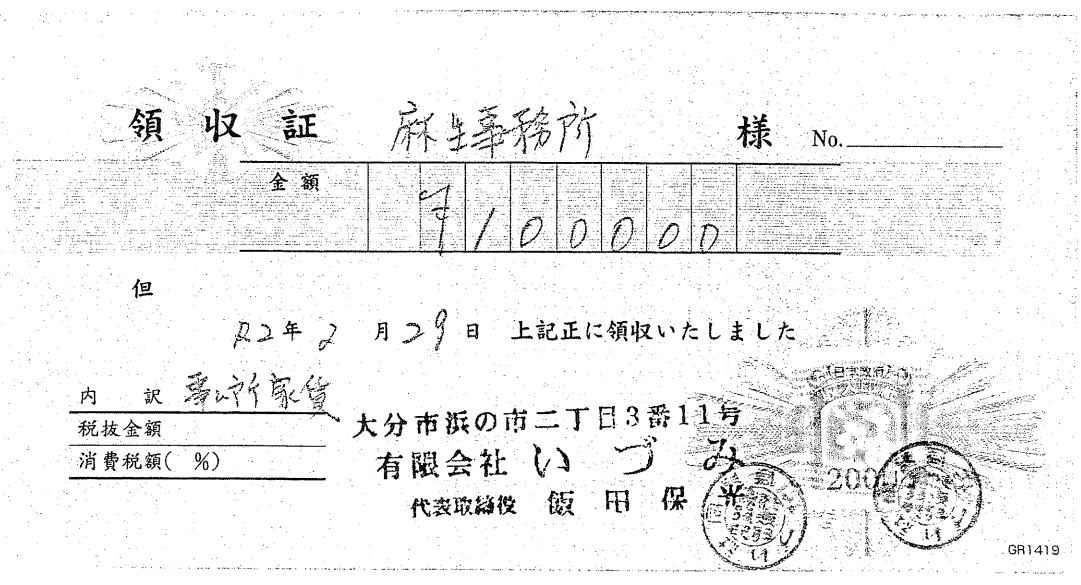 領収証 麻生事務所 様 No.
金額 ¥100000
但
R2年2月29日 上記正に領収いたしました
内訳 事ム所家賃
税抜金額
消費税額( %)
大分市浜の市二丁目3番11号
有限会社 いづみ
代表取締役 飯田保光
日本政府
200
GR1419